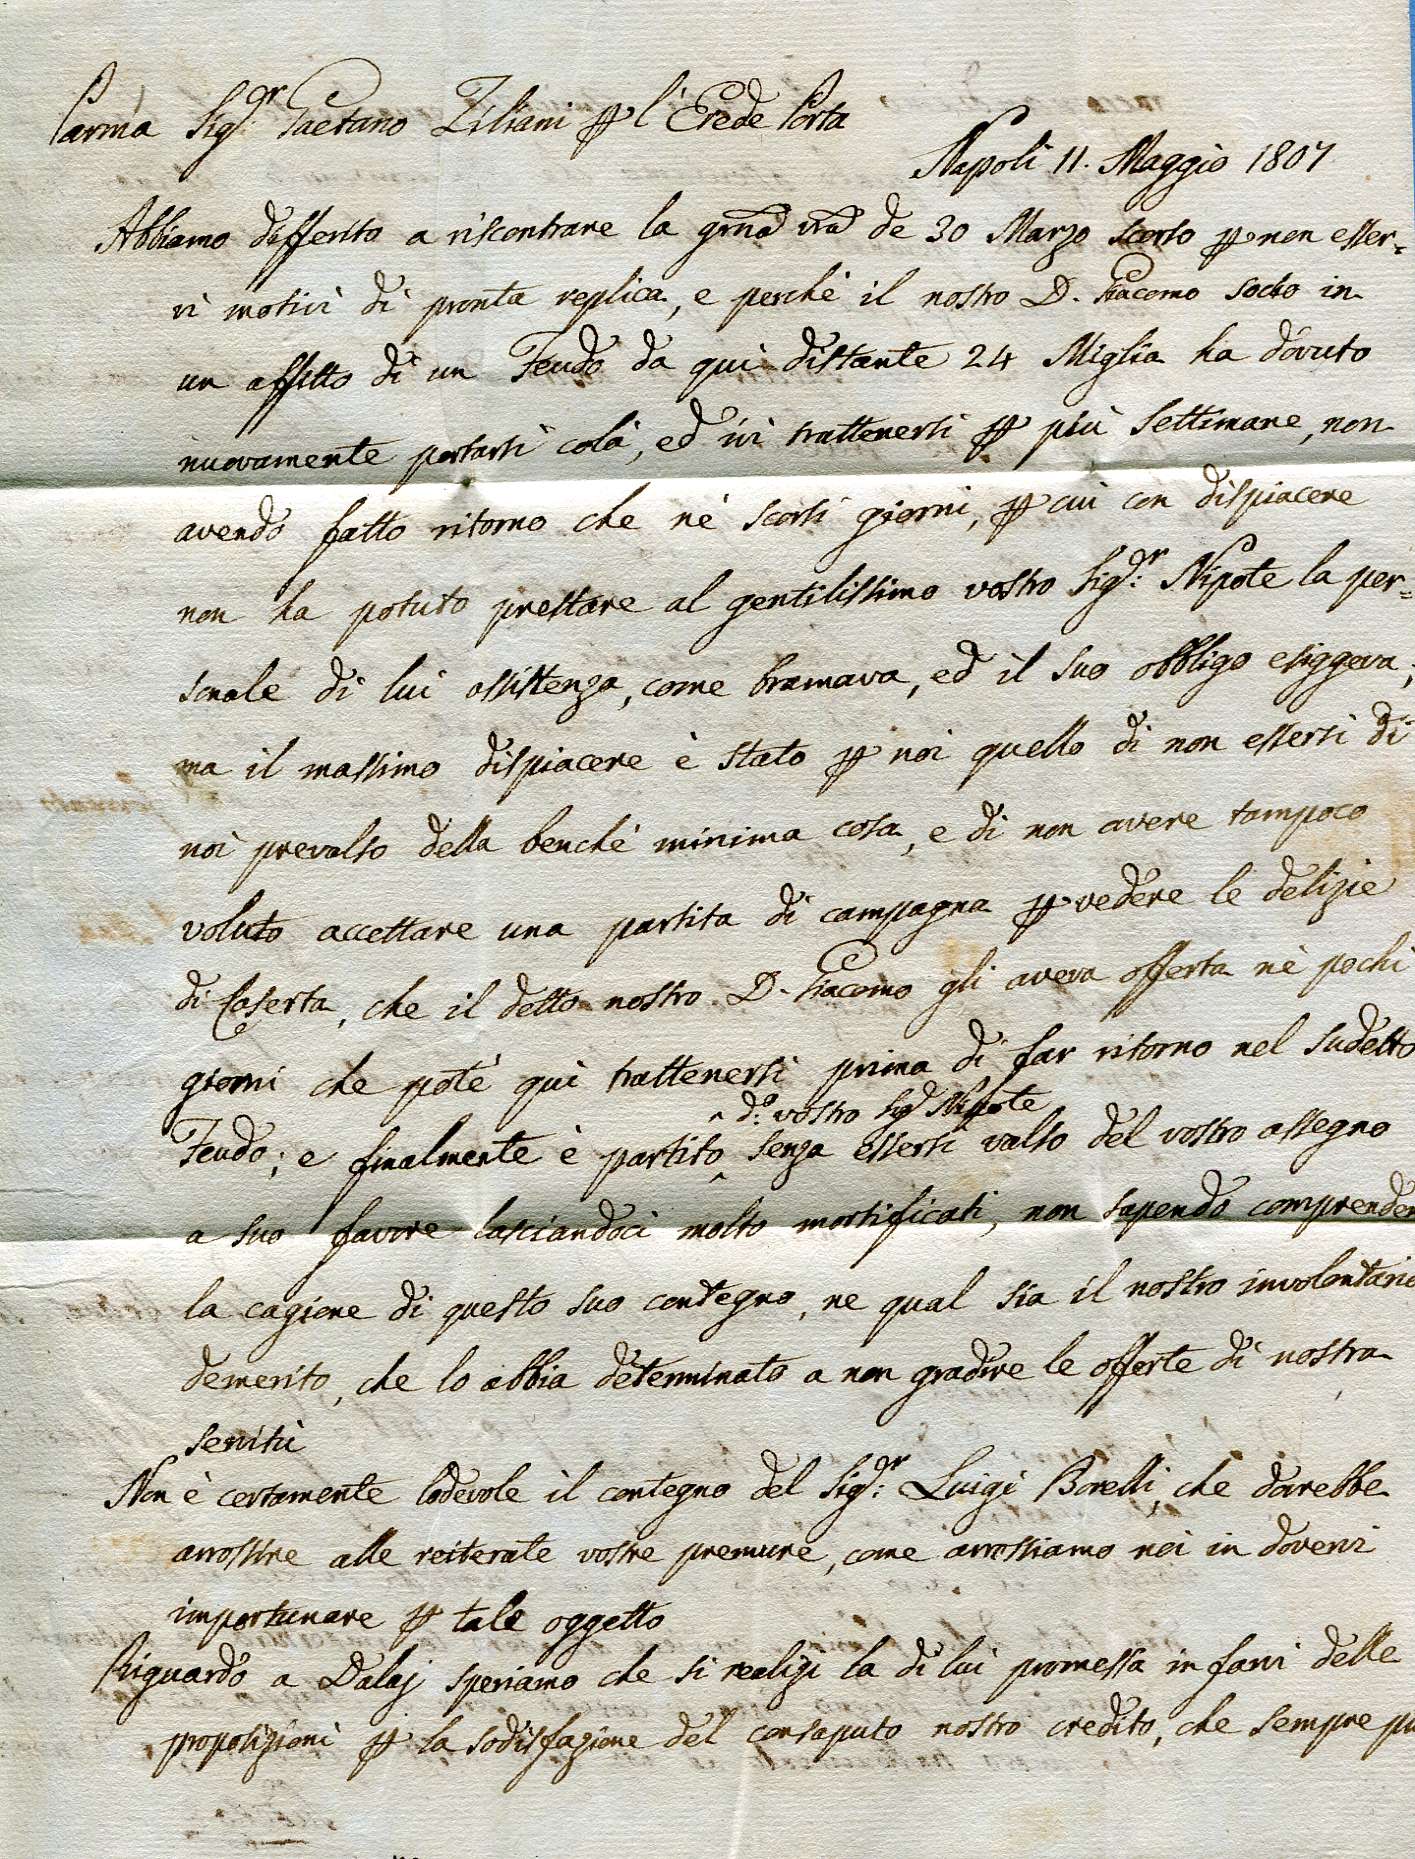 Parma Sig.r Gaetano Ziliani p l'Erede Porta
Napoli 11. Maggio 1807
Abbiamo differito a riscontrare la grma vra de 30 Marzo scorso p non esser=
vi motivi di pronta replica, e perchè il nostro D. Giacomo socio in
un affitto di un Feudo da qui distante 24 Miglia ha dovuto
nuovamente portarsi colà, ed ivi trattenersi p più settimane, non
avendo fatto ritorno che nè scorsi giorni, p cui con dispiacere
non ha potuto prestare al gentilissimo vostro Sig.r Nipote la per=
sonale di lui assistenza, come bramava, ed il suo obbligo esiggeva;
ma il massimo dispiacere è stato p noi quello di non essersi di
noi prevalso della benchè minima cosa, e di non avere tampoco
voluto accettare una partita di campagna p vedere le delizie
di Caserta, che il detto nostro D. Giacomo gli aveva offerta nè pochi
giorni che potè quì trattenersi prima di far ritorno nel sudetto
^ d.o vostro Sig.r Nipote
Feudo; e finalmente è partito ^ senza essersi valso del vostro assegno
a suo favore lasciandoci molto mortificati, non sapendo comprender
la cagione di questo suo contegno, ne qual sia il nostro involontario
demerito, che lo abbia determinato a non gradire le offerte di nostra
servitù
Non è certamente lodevole il contegno del Sig.r Luigi Borelli, che dovrebbe
arrossire alle reiterate vostre premure, come arrossiamo noi in dovervi
importunare p tale oggetto
Riguardo a Dalaj speriamo che si realizi la di lui promessa in farvi delle
proposizioni p la sodisfazione del consaputo nostro credito, che sempre più